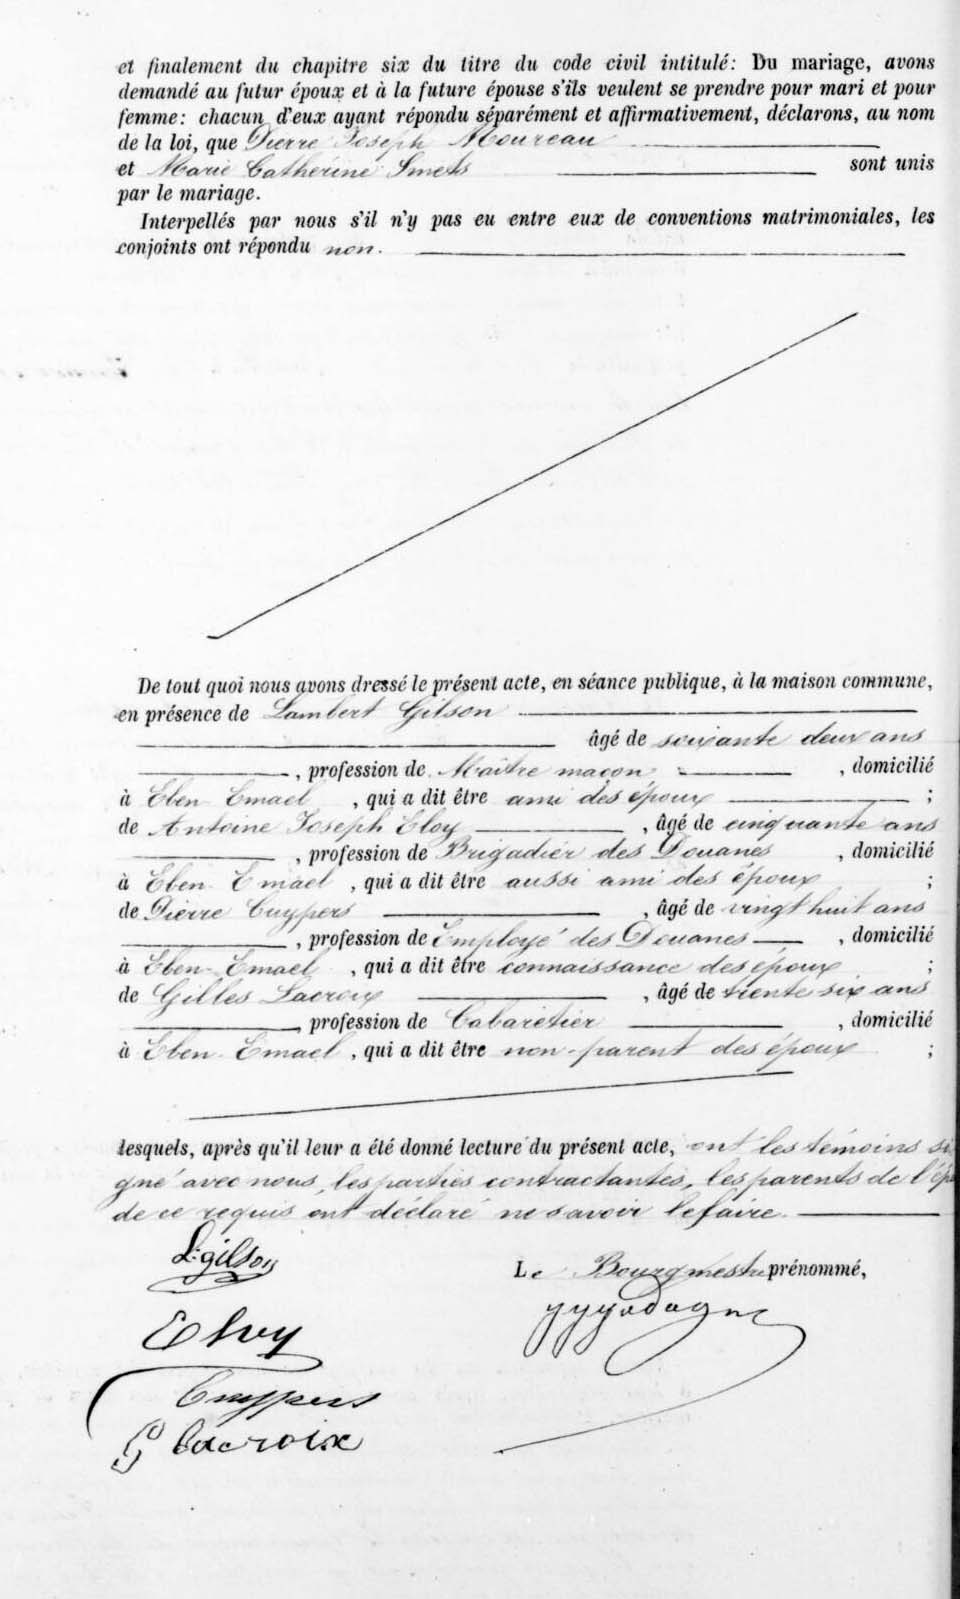 et finalement du chapitre six du titre du code civil intitulé: Du mariage, avons
demandé au futur époux et à la future épouse s'ils veulent se prendre pour mari et pour
femme: chacun d'eux ayant répondu séparément et affirmativement, déclarons, au nom
de la loi, que Pierre Joseph Moureau
et Marie Catherine Smets sont unis
par le mariage.
Interpellés par nous s'il n'y pas eu entre eux de conventions matrimoniales, les
conjoints ont répondu non.
De tout quoi nous avons dressé le présent acte, en séance publique, à la maison commune,
en présence de Lambert Gilson
âgé de soixante deux ans
, profession de Maître maçon , domicilié
à Eben-Emael , qui a dit être ami des époux ;
de Antoine Joseph Eloy , âgé de cinquante ans
, profession de Brigadier des Douanes , domicilié
à Eben-Emael , qui a dit être aussi ami des époux ;
de Pierre Cuypers , âgé de vingt huit ans
, profession de Employé des Douanes , domicilié
à Eben-Emael , qui a dit être connaissance des époux ;
de Gilles Lacroix , âgé de trente six ans
, profession de Cabaretier , domicilié
à Eben-Emael , qui a dit être non-parent des époux ;
lesquels, après qu'il leur a été donné lecture du présent acte, ont les témoins si
gné avec nous, les parties contractantes, les parents de l'ép
de ce requis ont déclaré ne savoir le faire.
L. gilson
Le Bourgmestre prénommé,
Eloy
Cuypers
G Lacroix